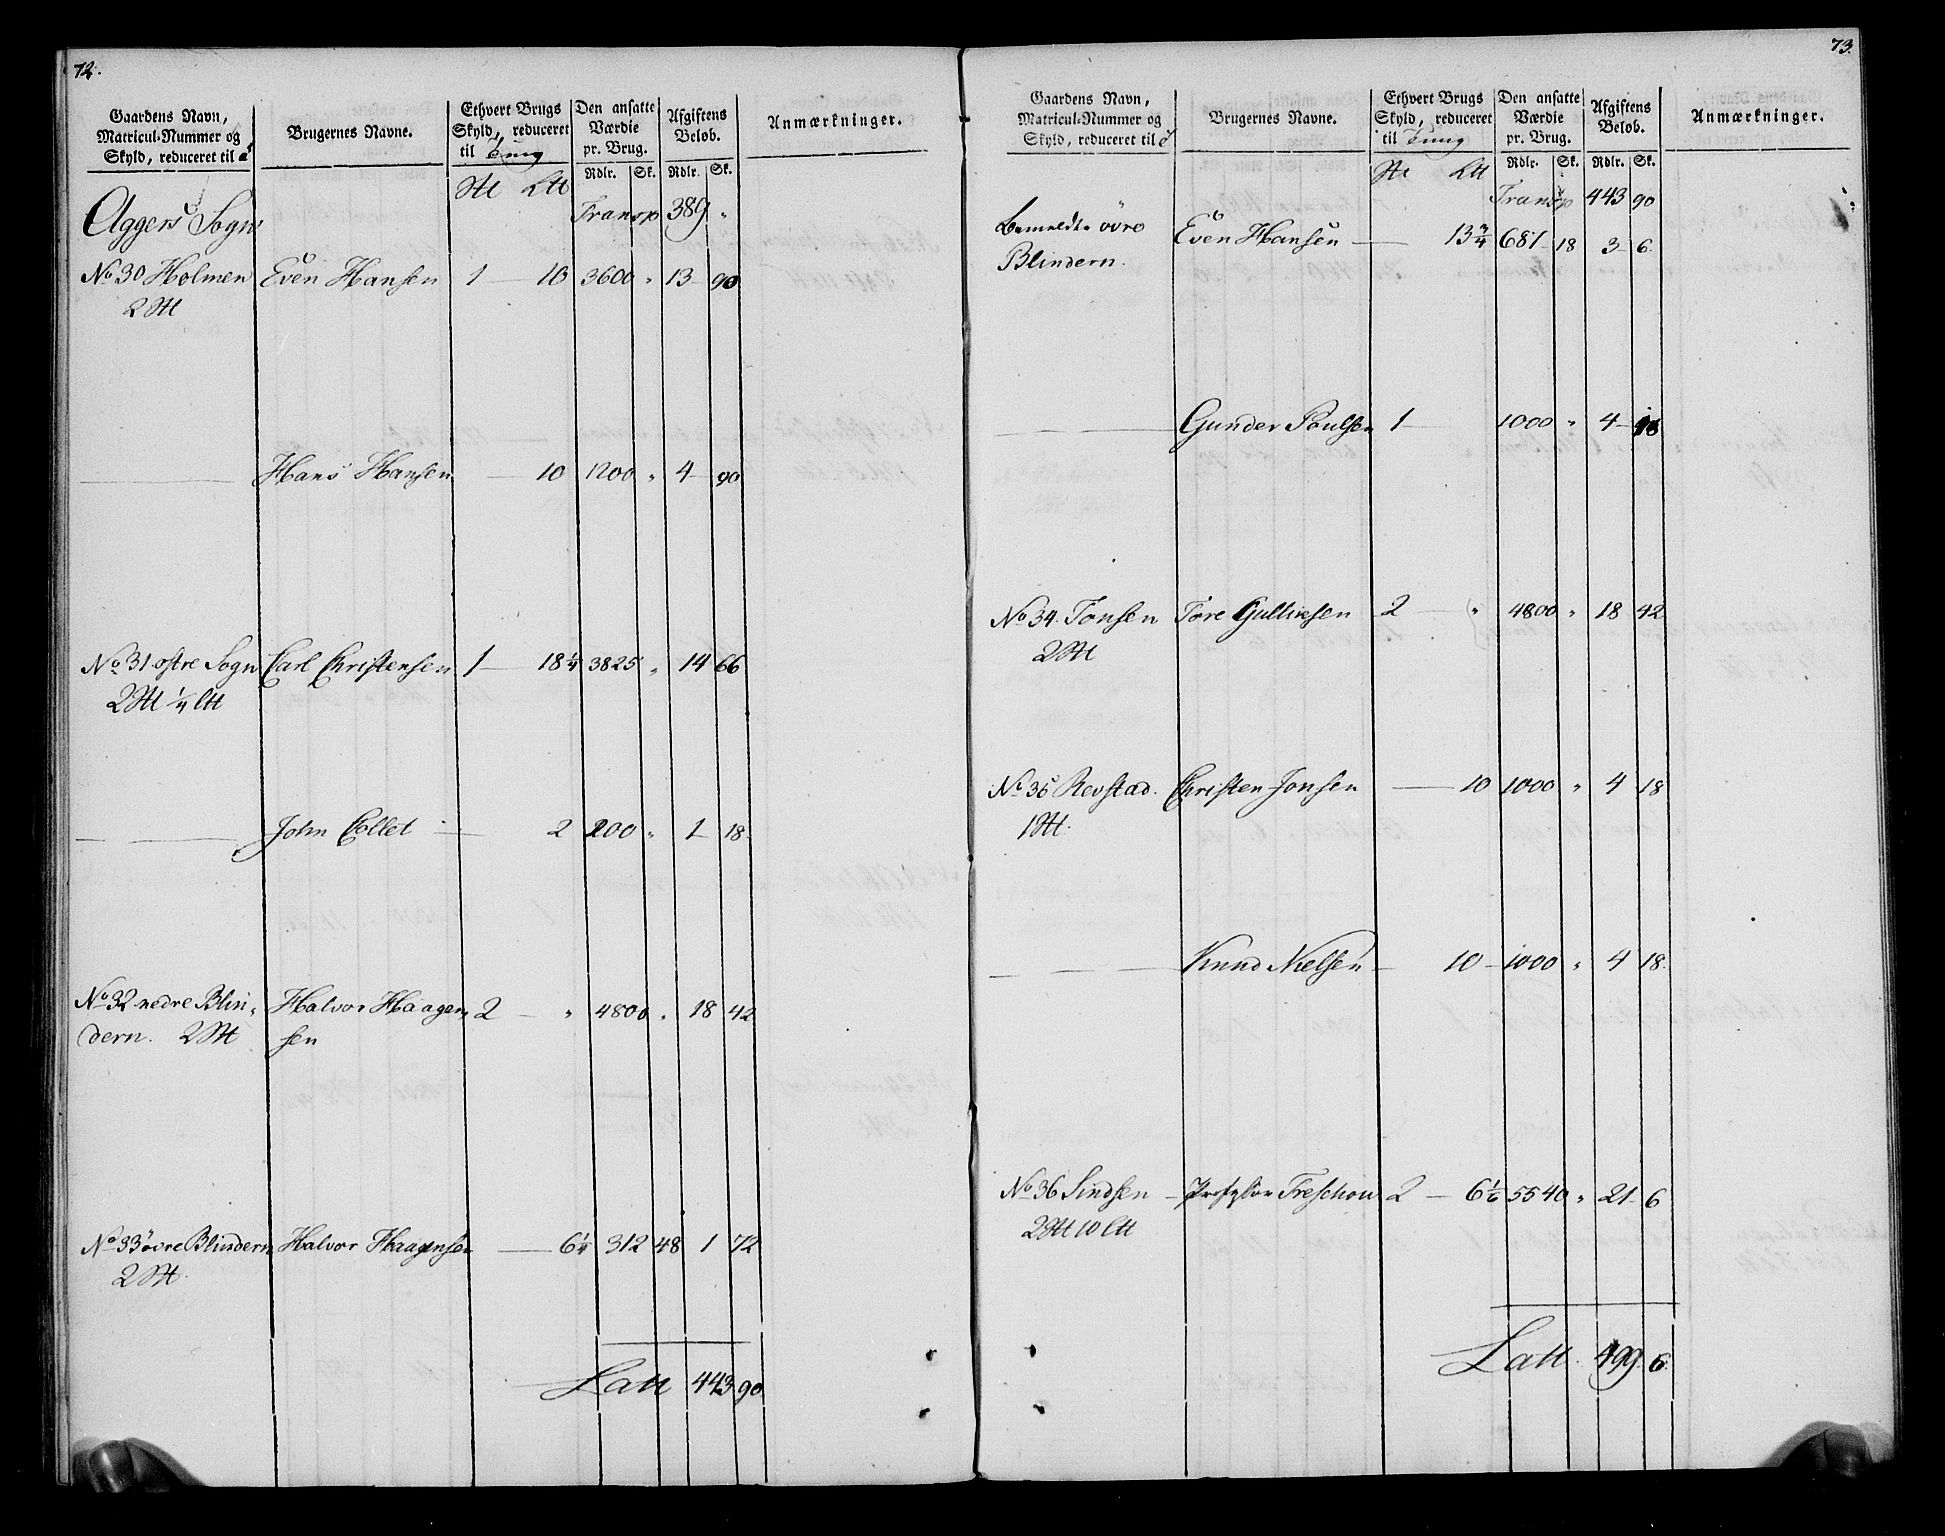 72.
Gaardens Navn, Matricul-Nummer og Skyld, reduceret til
Brugernes Navne.
Ethvert Brugs Skyld, reduceret til Tung
Den ansatte Værdie pr. Brug.
Afgiftens Beløb.
Anmærkninger.
Rdlr. Sk. Rdlr. Sk.
Aggers Sogn Transp 389 "
No 30 Holmen Even Hansen 1 — 10 3600 " 13 — 90
2
Hans Hansen — 10 1200 " 4 — 90
No 31 østre Sogn Carl Christensen 1 — 18 1/4 3825 " 14 66
2 1/4
John Collet — 2 200 " 1 18
No 32 nedre Blin- Halvor Haagen 2 — " 4800 " 18 42
dern. 2 sen
No 33 øvre Blindern Halvor Haagensen — 6 1/4 312 48 1 72
2
Latt 443 90
73.
Gaardens Navn, Matricul-Nummer og Skyld, reduceret til
Brugernes Navne.
Ethvert Brugs Skyld, reduceret til Tung
Den ansatte Værdie pr. Brug.
Afgiftens Beløb.
Anmærkninger.
Rdlr. Sk. Rdlr. Sk.
Transp 443 90
Bemeldte øvre Even Hansen — 13 3/4 681 18 3 6
Blindern.
Gunder Poulsen 1 — 1000 " 4 18
No 34. Tonsen Tore Gulliksen 2 — " 4800 " 18 42
2
No 35 Revstad. Christen Jonsen — 10 1000 " 4 18
1
Knud Nielsen — 10 1000 " 4 18
No 36 Sindsen Professor Treschou 2 — 6 1/6 5540 " 21 6
2 10
Latt. 499. 6